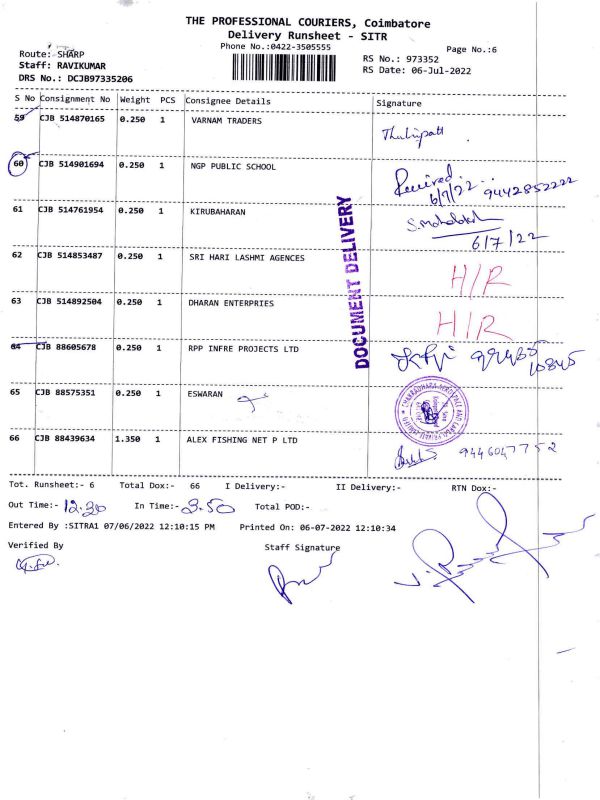 THE PROFESSIONAL COURIERS, Coimbatore
Delivery Runsheet - SITR
Phone No.:0422-3505555
Page No.:6
Route: SHARP
Staff: RAVIKUMAR
DRS No.: DCJB97335206
RS No.: 973352
RS Date: 06-Jul-2022
S No Consignment No Weight PCS Consignee Details Signature
59 CJB 514870165 0.250 1 VARNAM TRADERS
60 CJB 514901694 0.250 1 NGP PUBLIC SCHOOL Received
6/7/22 9442852222
61 CJB 514761954 0.250 1 KIRUBAHARAN
6/7/22
62 CJB 514853487 0.250 1 SRI HARI LASHMI AGENCES H/R
63 CJB 514892504 0.250 1 DHARAN ENTERPRIES H/R
DOCUMENT DELIVERY
64 CJB 88605678 0.250 1 RPP INFRE PROJECTS LTD
10845
65 CJB 88575351 0.250 1 ESWARAN
66 CJB 88439634 1.350 1 ALEX FISHING NET P LTD 9446047752
Tot. Runsheet:- 6 Total Dox:- 66 I Delivery:- II Delivery:- RTN Dox:-
Out Time:- 12.30 In Time:- 3.50 Total POD:-
Entered By :SITRA1 07/06/2022 12:10:15 PM Printed On: 06-07-2022 12:10:34
Verified By Staff Signature